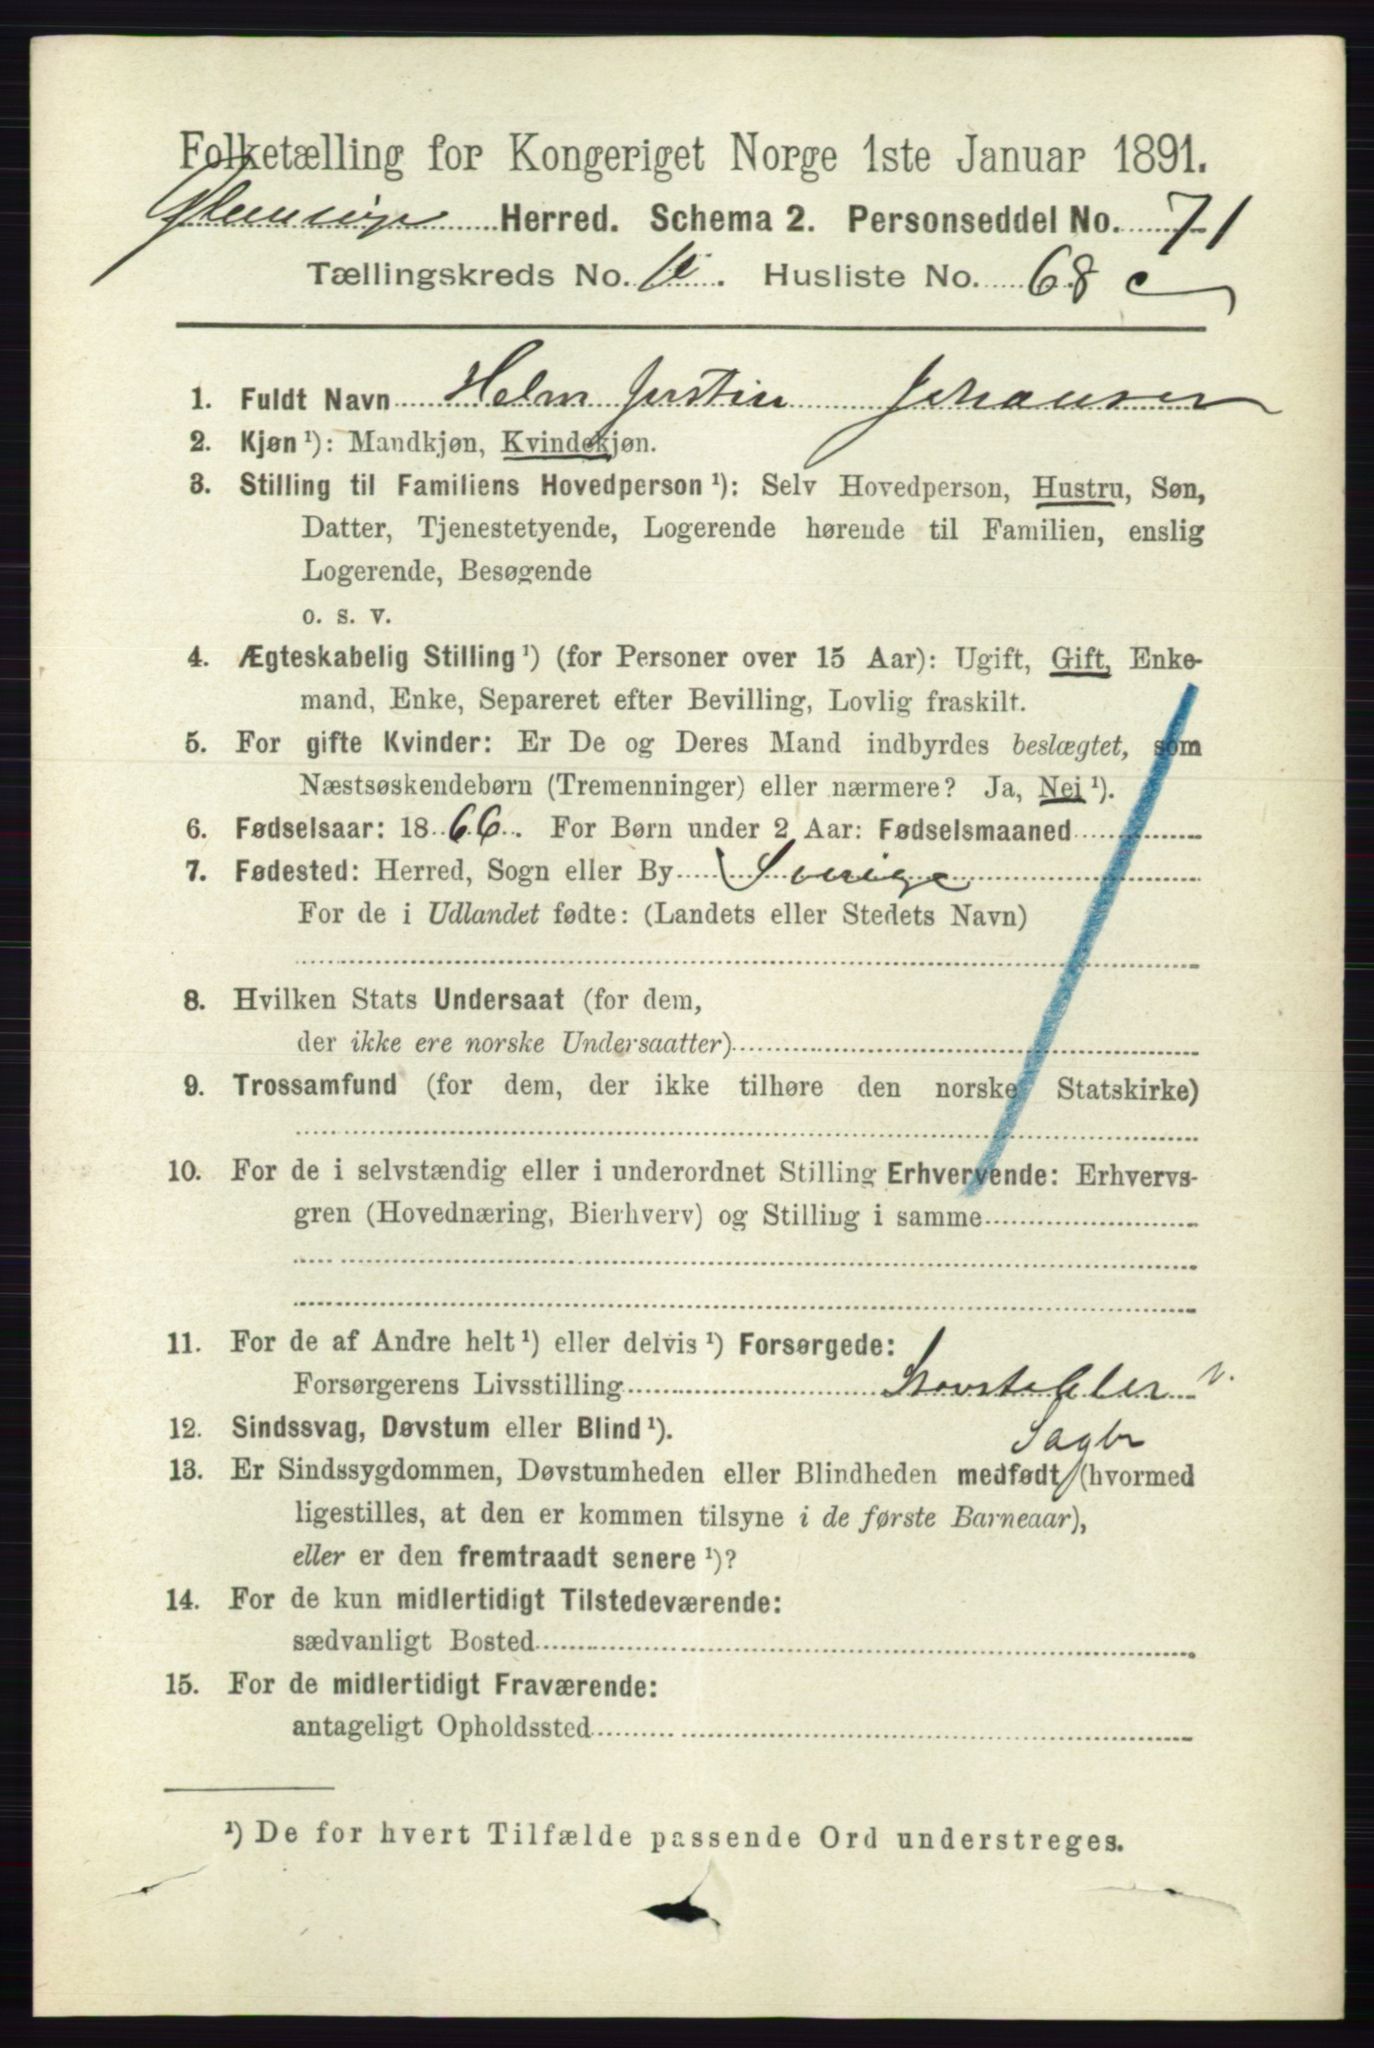 Folketælling for Kongeriget Norge 1ste Januar 1891.
Glemminge Herred. Schema 2. Personseddel No. 71
Tællingskreds No. Husliste No. 68 c
1. Fuldt Navn Helm Justin Johansen
2. Kjøn ¹): Mandkjøn, Kvindekjøn.
3. Stilling til Familiens Hovedperson ¹): Selv Hovedperson, Hustru, Søn,
Datter, Tjenestetyende, Logerende hørende til Familien, enslig
Logerende, Besøgende
o. s. v.
4. Ægteskabelig Stilling ¹) (for Personer over 15 Aar): Ugift, Gift, Enke-
mand, Enke, Separeret efter Bevilling, Lovlig fraskilt.
5. For gifte Kvinder: Er De og Deres Mand indbyrdes beslægtet, som
Næstsøskendebørn (Tremenninger) eller nærmere? Ja, Nei ¹).
6. Fødselsaar: 1866. For Børn under 2 Aar: Fødselsmaaned
7. Fødested: Herred, Sogn eller By Sverige
For de i Udlandet fødte: (Landets eller Stedets Navn)
8. Hvilken Stats Undersaat (for dem,
der ikke ere norske Undersaatter)
9. Trossamfund (for dem, der ikke tilhøre den norske Statskirke)
10. For de i selvstændig eller i underordnet Stilling Erhvervende: Erhvervs-
gren (Hovednæring, Bierhverv) og Stilling i samme
11. For de af Andre helt ¹) eller delvis ¹) Forsørgede:
Forsørgerens Livsstilling v.
12. Sindssvag, Døvstum eller Blind ¹). Sagbr
13. Er Sindssygdommen, Døvstumheden eller Blindheden medfødt (hvormed
ligestilles, at den er kommen tilsyne i de første Barneaar),
eller er den fremtraadt senere ¹)?
14. For de kun midlertidigt Tilstedeværende:
sædvanligt Bosted
15. For de midlertidigt Fraværende:
antageligt Opholdssted
¹) De for hvert Tilfælde passende Ord understreges.